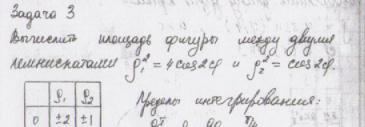 Задача 3
Вычислить площадь фигуры между двумя
лемнискатами ρ₁² = 4cos2φ и ρ₂² = cos2φ.
ρ₁ ρ₂ Пределы интегрирования:
0 ±2 ±1 от 0 до π/4